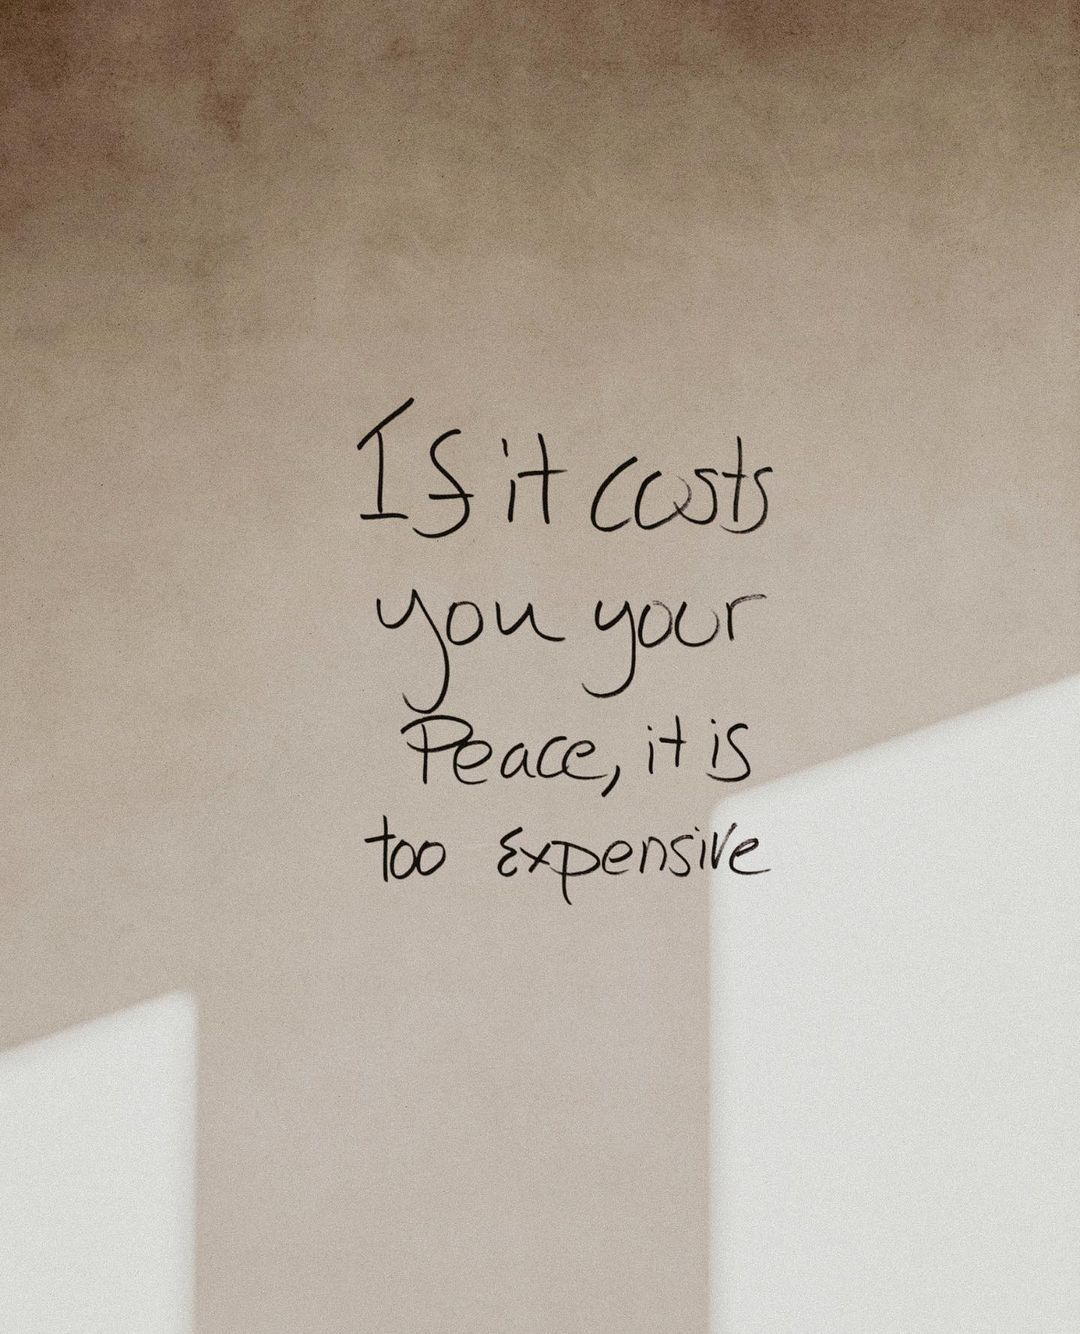 If it costs
you your
Peace, it is
too expensive